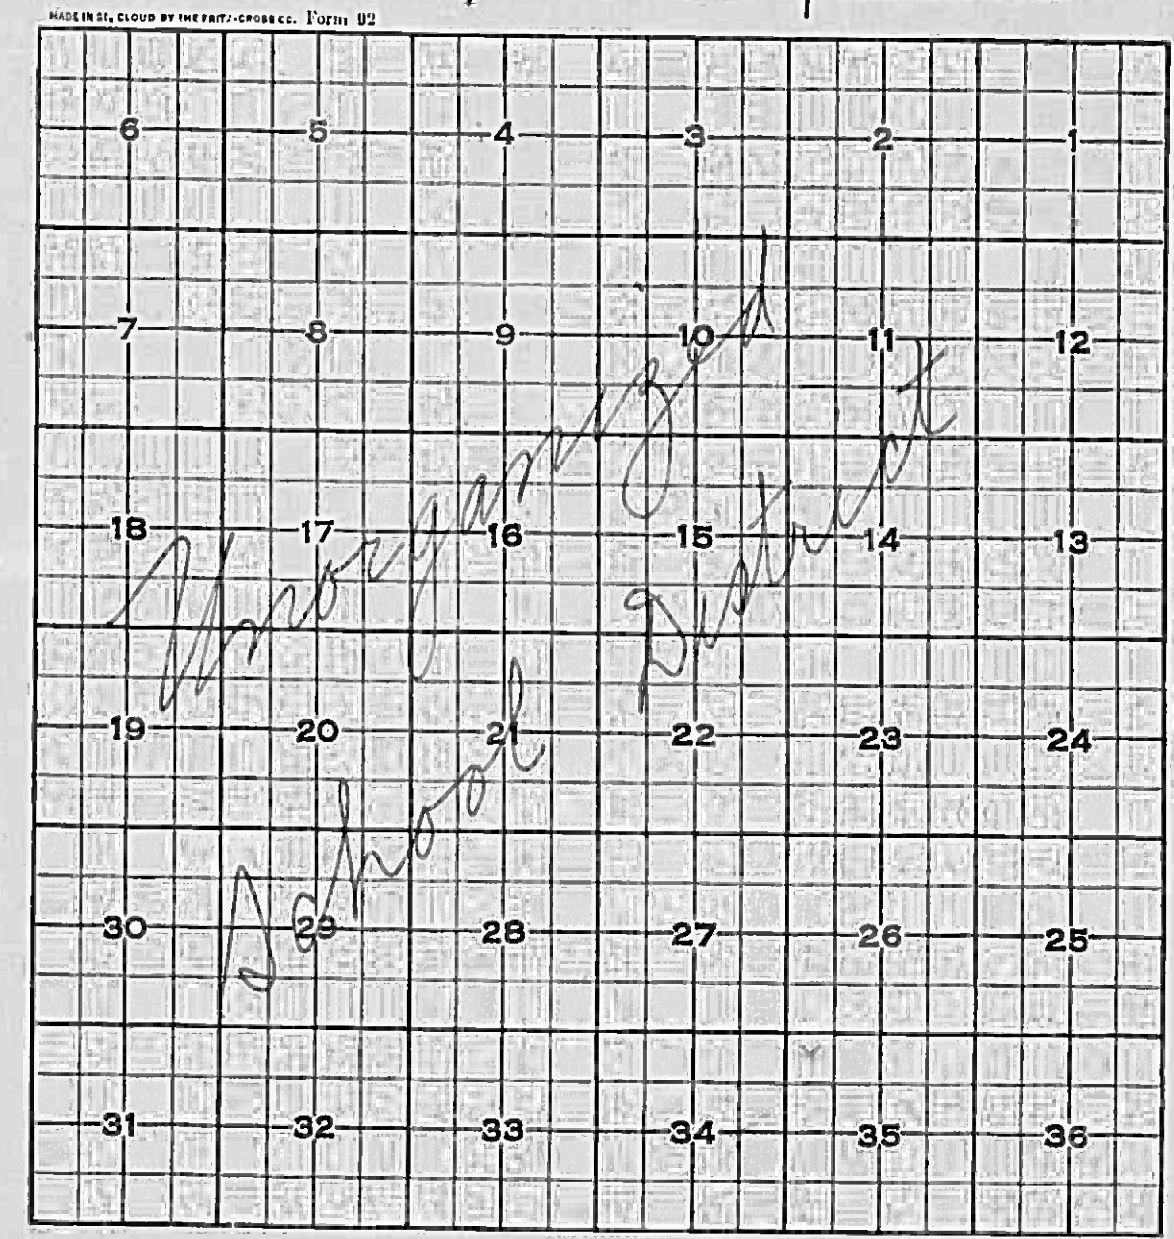 MADE IN ST. CLOUD BY THE FRITZ-CROSS CO. Form 92
6 5 4 3 2 1
7 8 9 10 11 12
18 17 16 15 14 13
19 20 21 22 23 24
30 29 28 27 26 25
31 32 33 34 35 36
Unorganized
School District